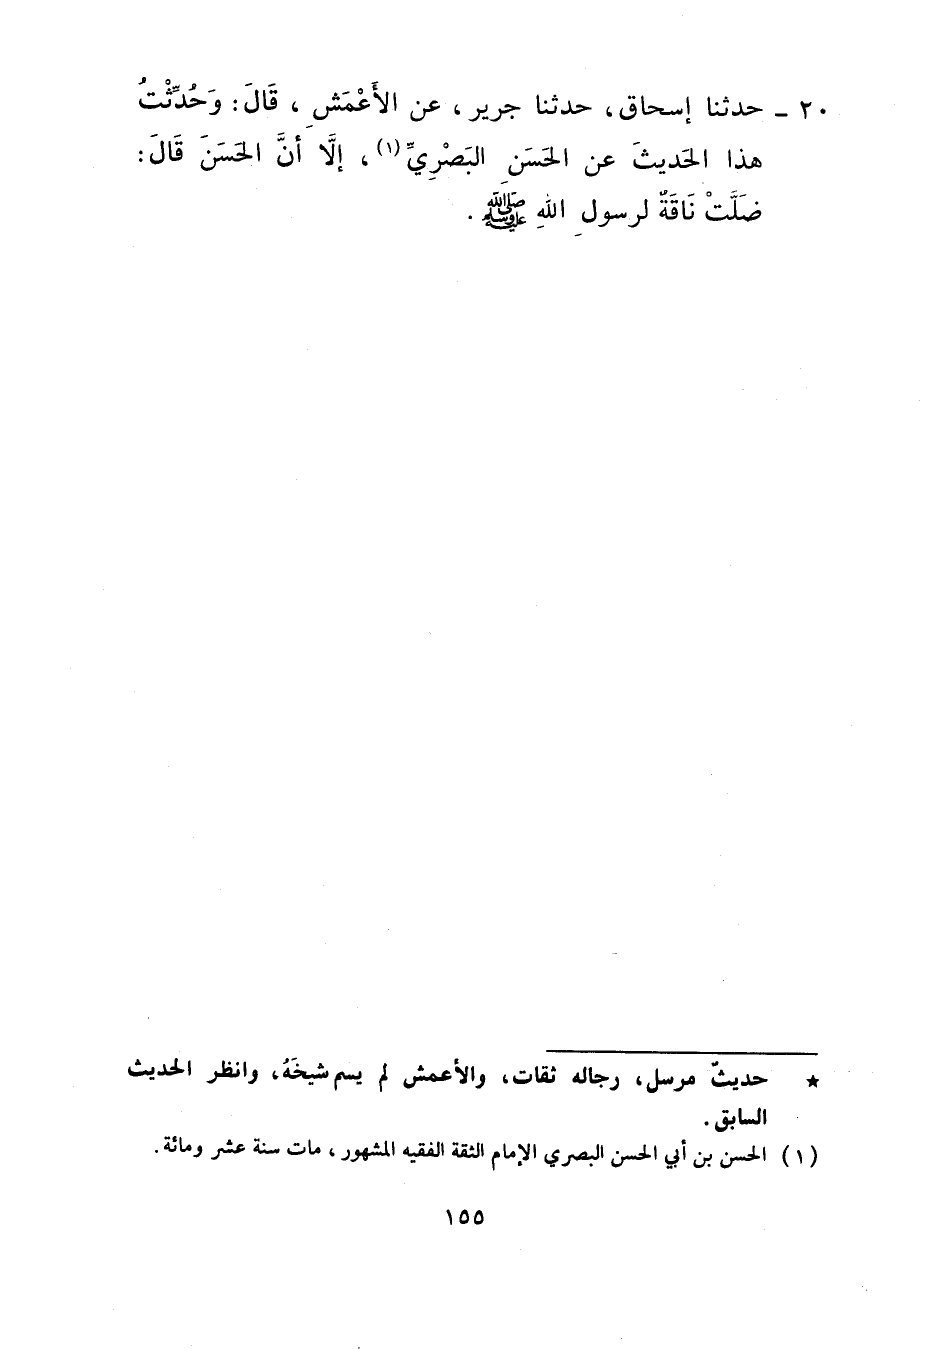 ٢٠ ـ حدثنا إسحاق، حدثنا جرير، عن الأَعْمَشِ، قَالَ: وَحُدِّثْتُ
هذا الحَديثَ عن الحَسَنِ البَصْرِيِّ(١)، إلَّا أنَّ الحَسَنَ قَالَ:
ضَلَّتْ نَاقَةٌ لرسولِ اللهِ ﷺ.
★ حديثٌ مرسل، رجاله ثقات، والأعمش لم يسم شيخَهُ، وانظر الحديث
السابق.
(١) الحسن بن أبي الحسن البصري الإمام الثقة الفقيه المشهور، مات سنة عشر ومائة.
١٥٥